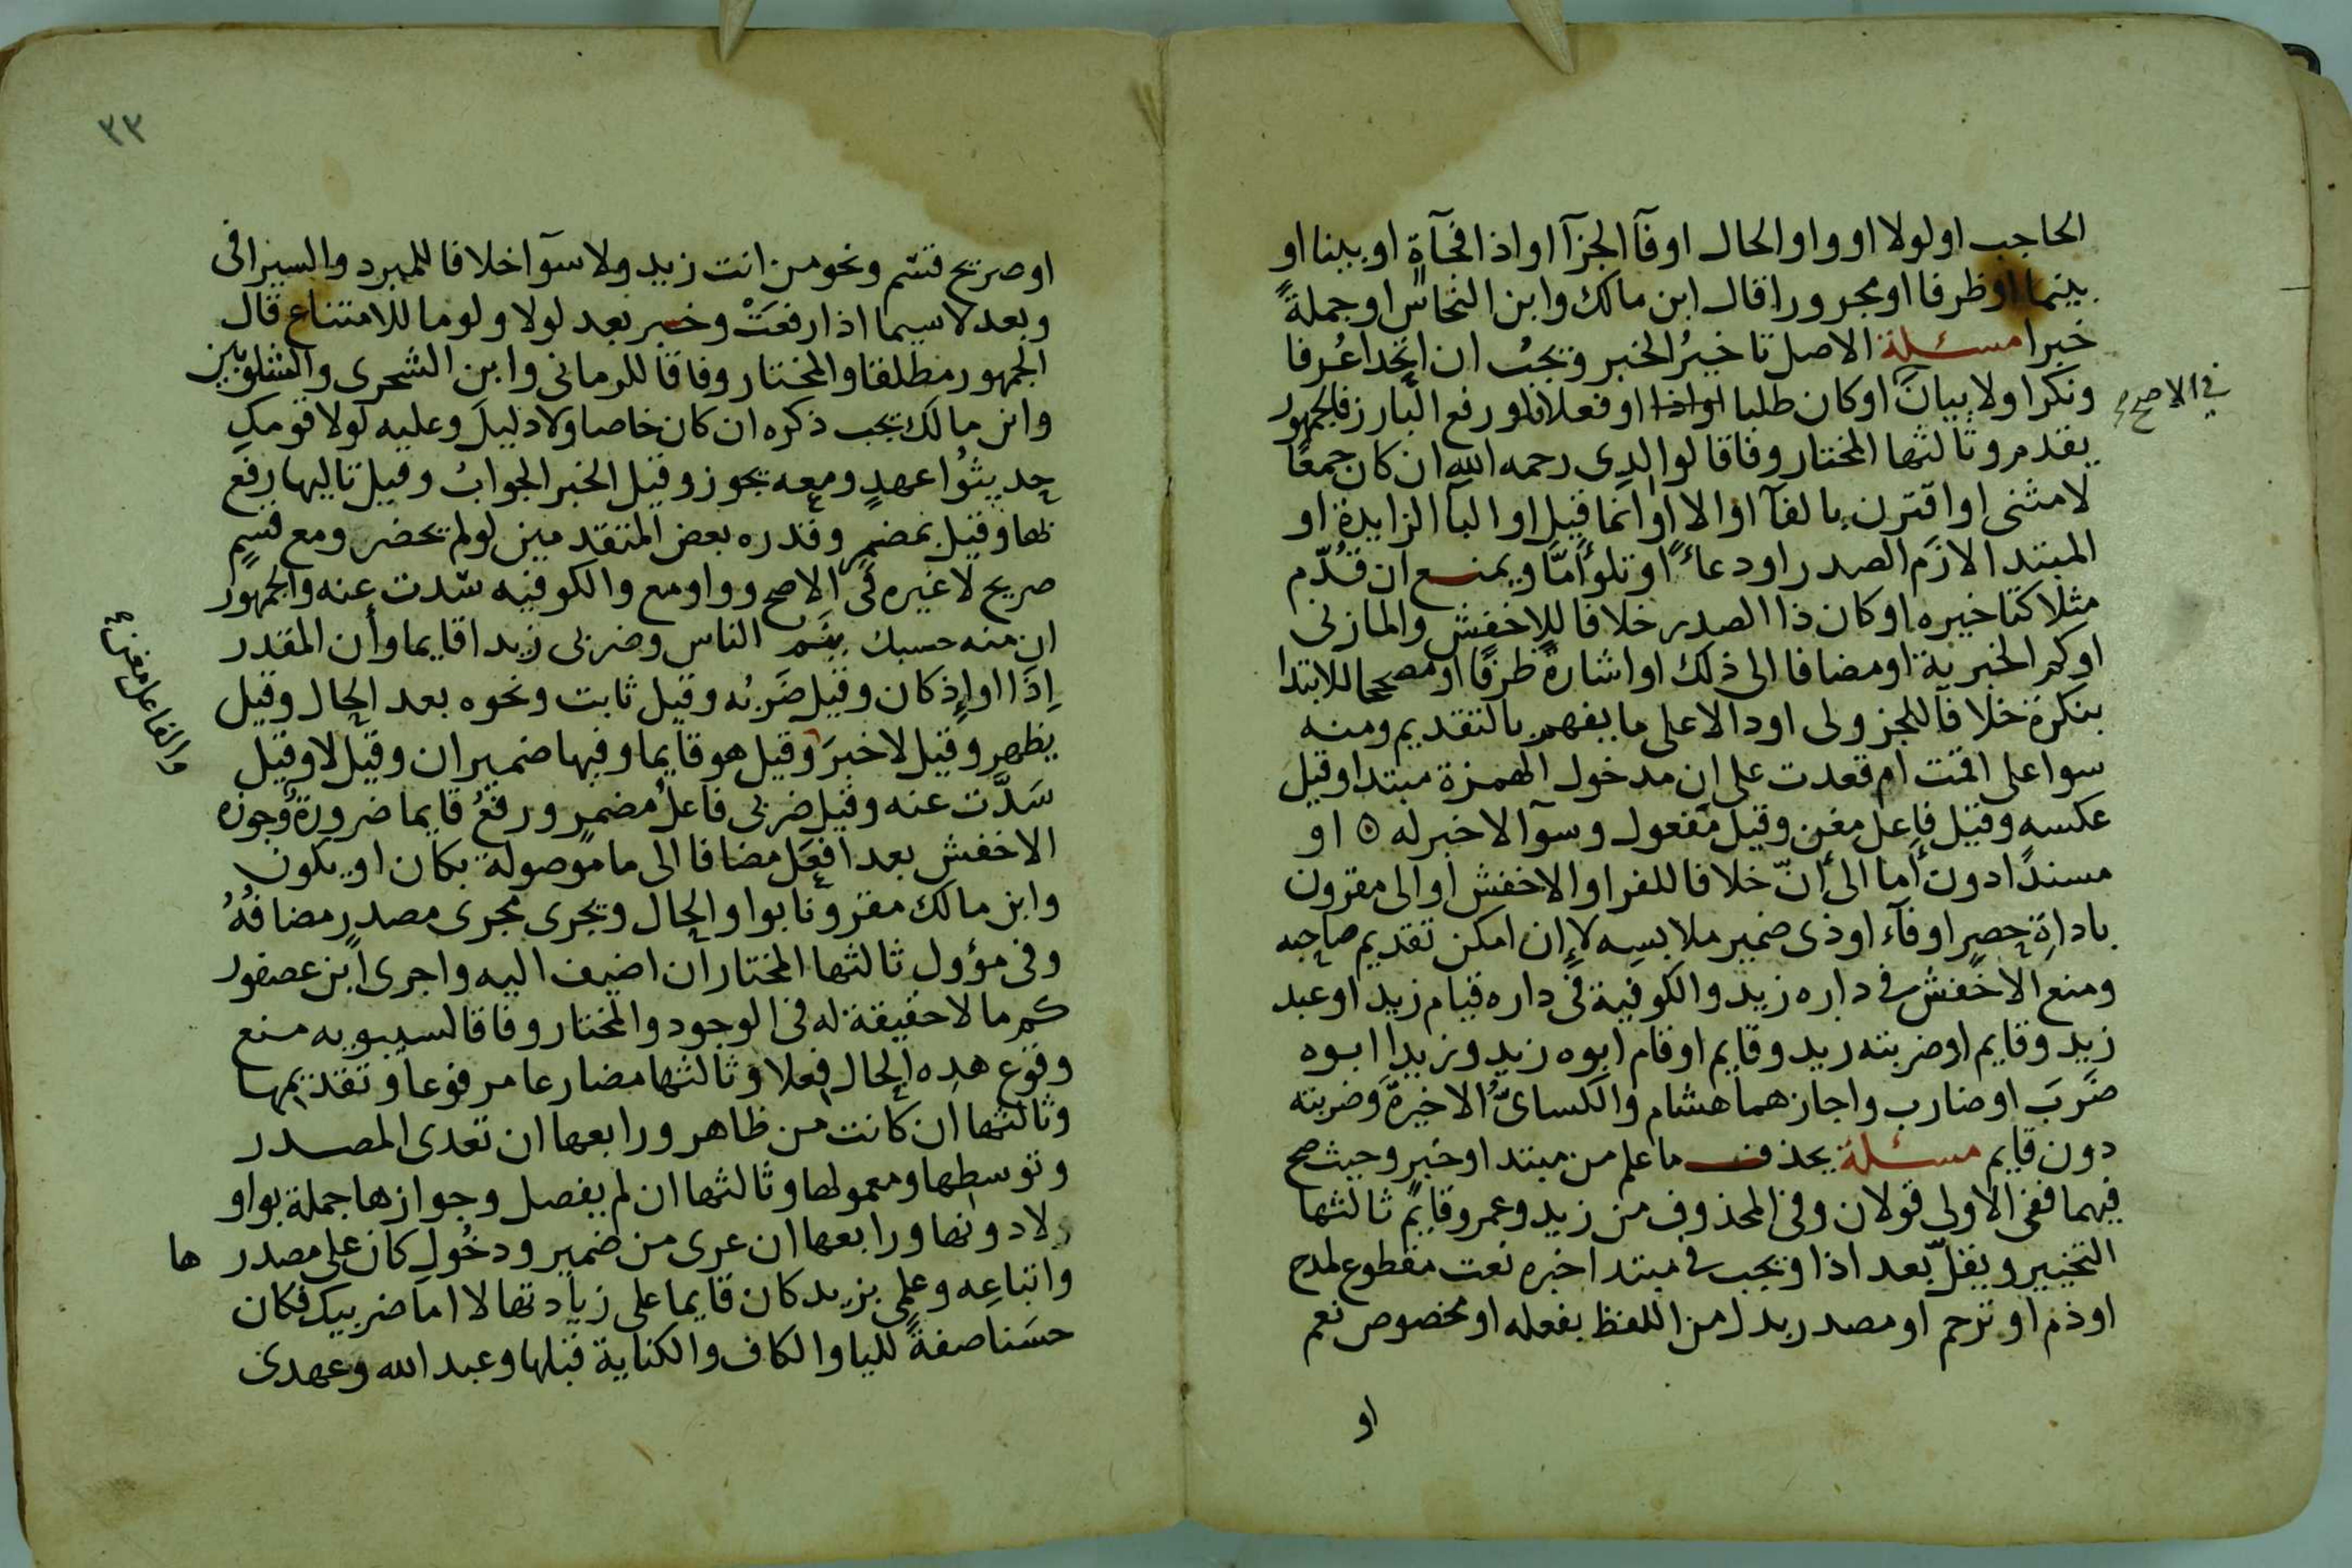 الحاجب اولولا او واو الحال اوفآ الجزآ او اذا فجآة او بينا او
بينما او ظرفا او مجرورا قال ابن مالك وابن النحاس او جملةً
خبرا مسئلة الاصل تاخيرُ الخبر ويجبُ ان اتحدا عُرفا
ونكرا ولا بيانَ او كان طلبا او فعلا فلو رفع البارز فالجمهور
في الاصح
يقدم وثالثها المختار وفاقا لوالدى رحمه الله ان كان جمعا
لا مثنى او اقترن بالفآ او الا او انما قيل او البآ الزايدة او
المبتدا لازم الصدر او دعاءً او تلو أمّا ويمنع ان قُدّم
مثلا كتاخيره او كان ذا الصدر خلافا للاخفش والمازنى
اوكم الخبرية او مضافا الى ذلك او اشارةً ظرفًا او مصححا للابتدا
بنكرة خلافا للجزولى او دالا على ما يفهم بالتقديم ومنه
سوا على اقمت ام قعدت على ان مدخول الهمزة مبتدا وقيل
عكسه وقيل فاعل مغن وقيل مفعول وسوآ لا خبر له ٥ او
مسندًا دون أما الى أنّ خلافا للفرا والاخفش او الى مقرون
باداةِ حصرٍ اوفآء او ذى ضمير ملابسِه لا إن امكن تقديم صاحبه
ومنع الاخفش فى داره زيد والكوفية فى داره قيام زيد او عبد
زيد وقايم او ضربته زيد وقايم او قام ابوه زيد وزيدا ابوه
ضَرَبَ او ضارب واجازهما هشام والكساىُّ الاخيرةَ وضربته
دون قايم مسئلة يحذف ما علم من مبتدا او خبرٍ وحيث صح
فيهما ففى الاولى قولان وفى المحذوف من زيد وعمرو قايم ثالثها
التخيير ويقلّ بعد اذا ويجب فى مبتدا خبره نعت مقطوع لمدح
او ذم او ترحم او مصدر بدل من اللفظ بفعله او مخصوص نعم
او
٣٣
او صريح قسم ونحو من انت زيد ولا سوآ خلافا للمبرد والسيرافى
وبعد لاسيما اذا رفعَتْ وخبر بعد لولا ولوما للامتناع قال
الجمهور مطلقا والمختار وفاقا للرمانى وابن الشجرى والشلوبين
وابن مالك يجب ذكره ان كان خاصا ولا دليلَ وعليه لولا قومكِ
حديثُوا عهدٍ ومعه يجوز وقيل الخبر الجوابُ وقيل تاليها رفع
بها وقيل بمضمرٍ وقدره بعض المتقدمين لولم يحضر ومع قسمٍ
صريح لا غيره فى الاصح وواو مع والكوفيه سّدت عنه والجمهور
ان منه حسبك ينَم الناس وضربى زيدا قايما وأن المقدر
إذَا او إذ كان وقيل ضَرْبُه وقيل ثابت ونحوه بعد الحال وقيل
والفاعل مغن
يظهر وقيل لا خبرَ وقيل هو قايما وفيها ضميران وقيل لا وقيل
سَدَّت عنه وقيل ضربى فاعلُ مُضمرٍ ورفعُ قايما ضرورةٌ وجوزه
الاخفش بعد افعَل مضافا الى ما موصولة بكان او يكون
وابن مالك مقرونا بواو الحال ويجرى مجرى مصدر مضافُهُ
وفى مؤول ثالثها المختار ان اضيف اليه واجرى ابن عصفور
كم ما لا حقيقة له فى الوجود والمختار وفاقا لسيبويه منع
وقوع هذه الحال فعلا وثالثها مضارعا مرفوعا وتقديمها
وثالثها ان كانت من ظاهر ورابعها ان تعدى المصدر
وتوسطها ومعمولها وثالثها ان لم يفصل وجوازها جملة بواو
لا دونها ورابعها ان عرى من ضمير ودخُول كان على مصدر ها
واتباعِه وعلمى بزيد كان قايما على زيادتها لا اما ضربيك فكان
حسَنا صفةً لليا والكاف والكناية قبلها وعبد الله وعهدى